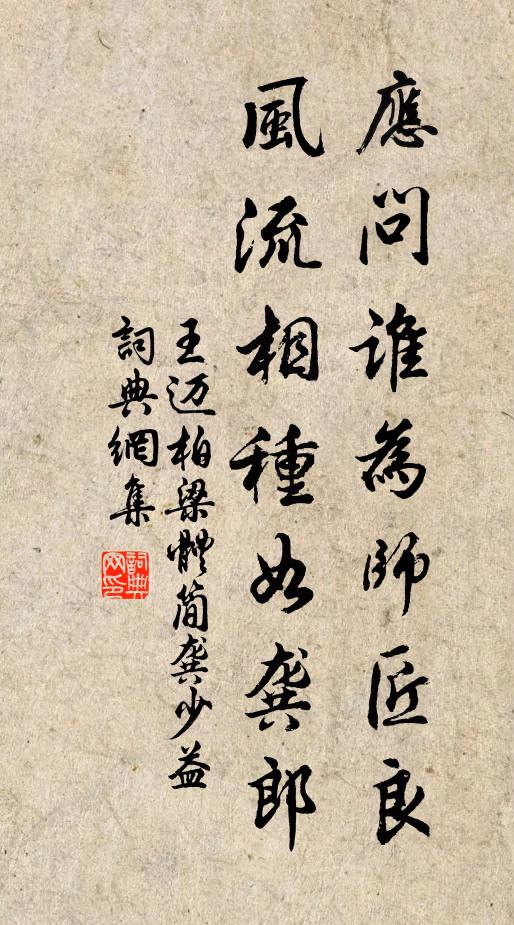 應問誰為師匠良
風流相種如龔郎
王迈柏梁體簡龔少益
詞典網集
詞典网印